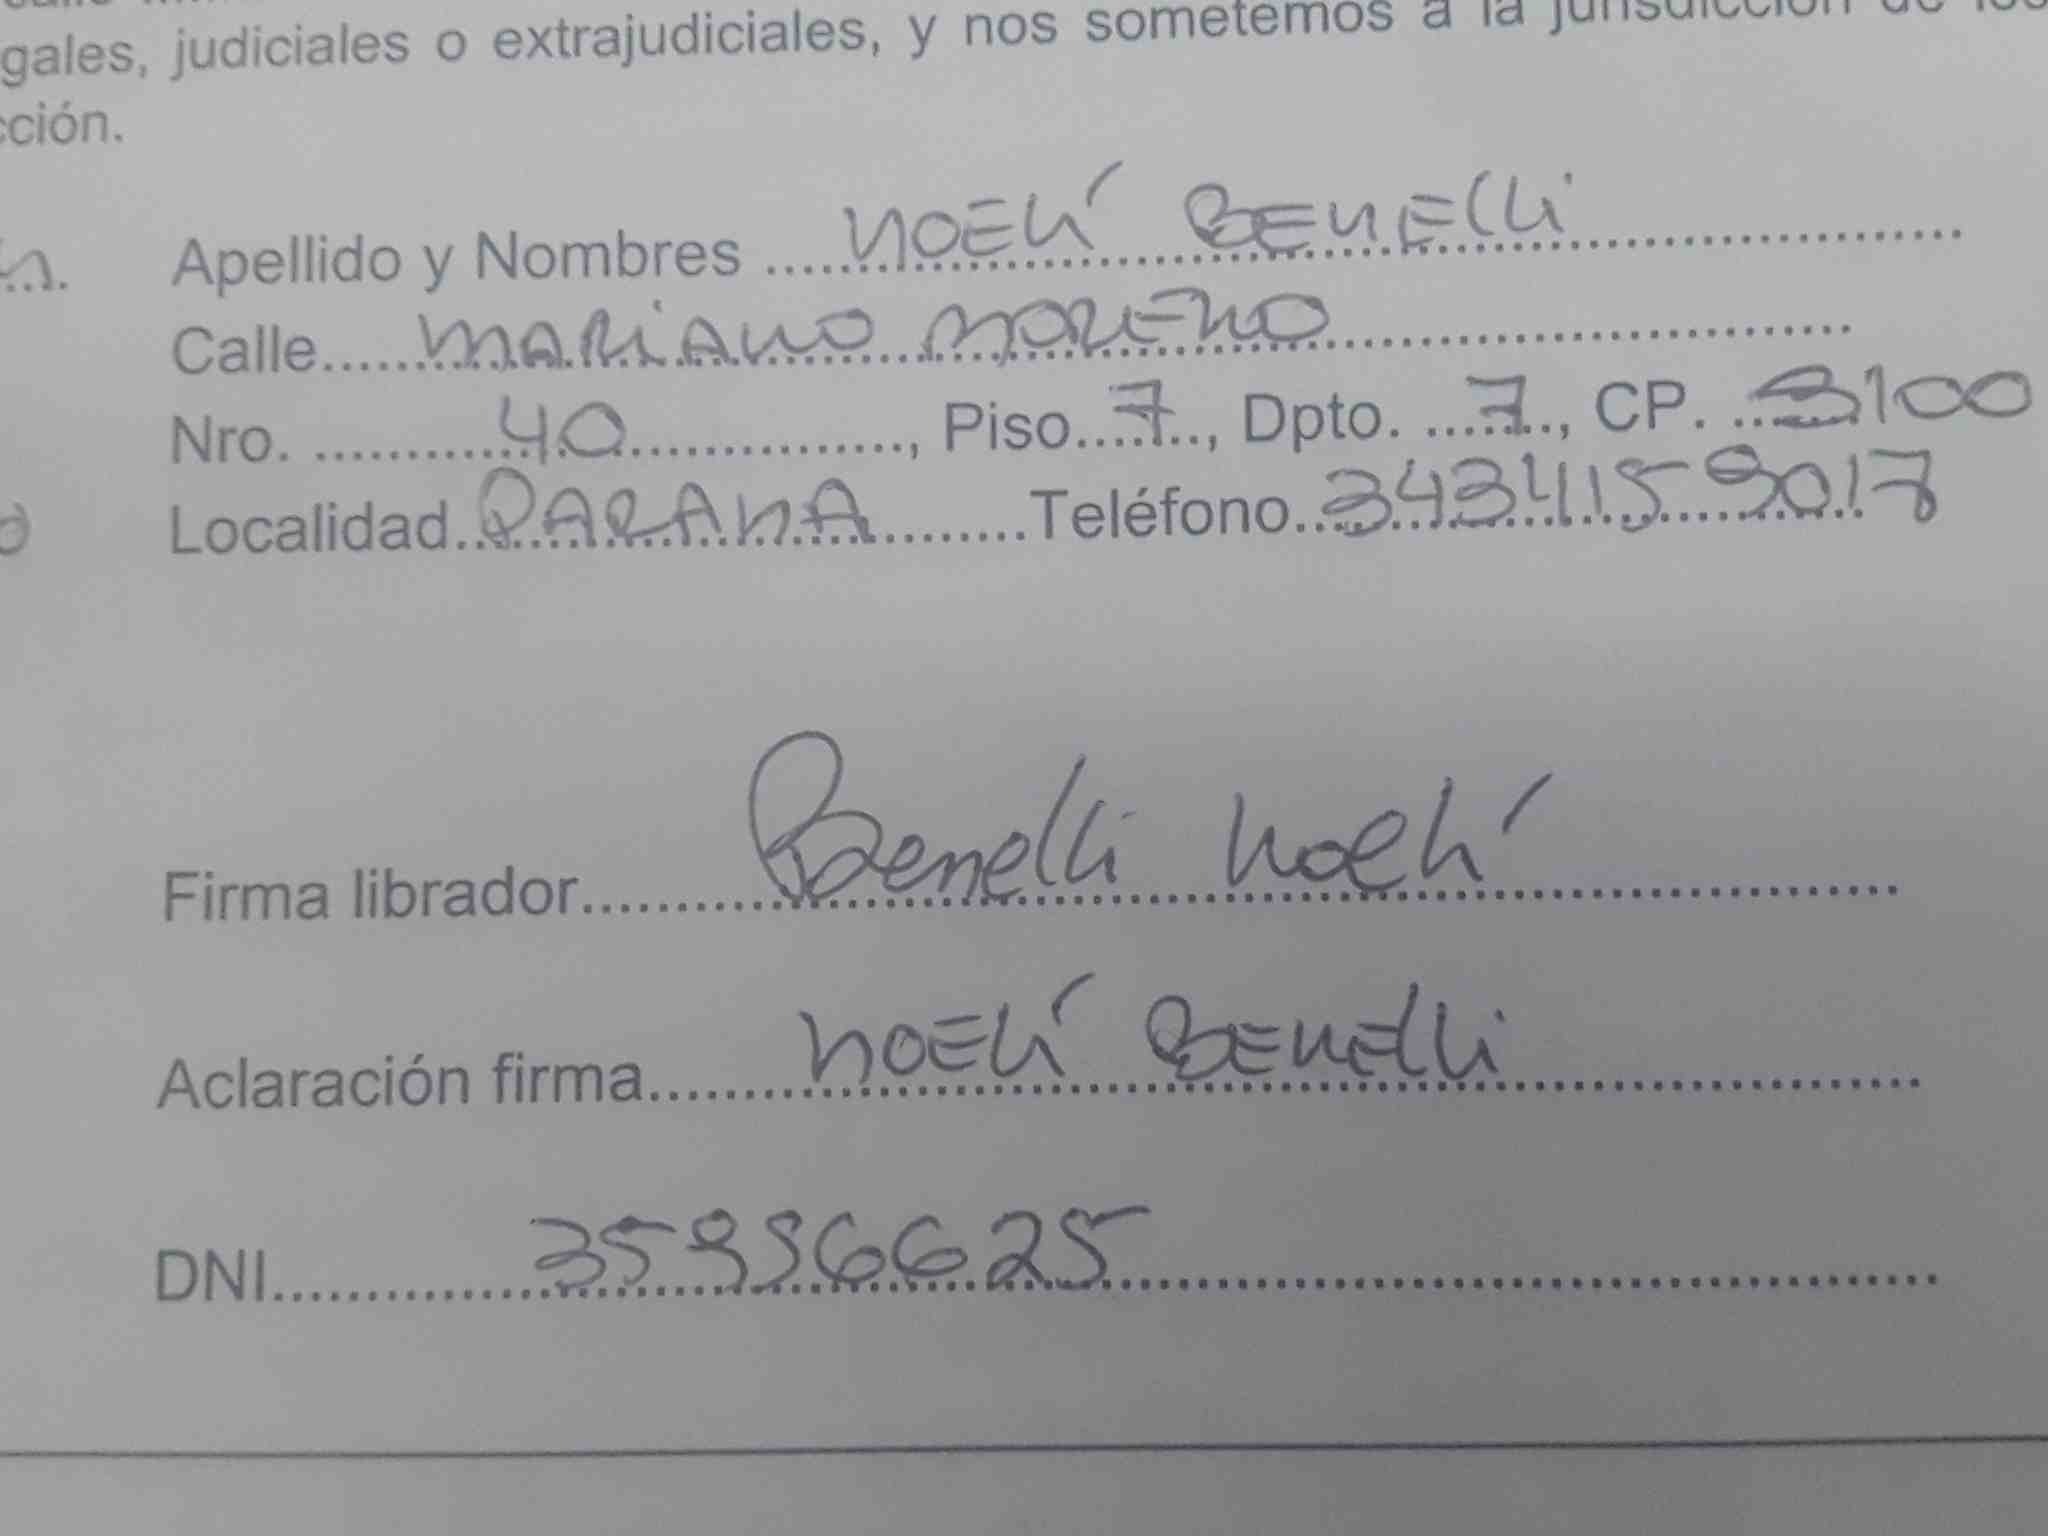 gales, judiciales o extrajudiciales, y nos sometemos a la jurisdicción de los
cción.
Apellido y Nombres NOELÍ BENELLI
Calle MARIANO MORENO
Nro. 40, Piso 7, Dpto. 7, CP. 3100
Localidad PARANA Teléfono 3434159017
Firma librador Benelli Noelí
Aclaración firma NOELÍ BENELLI
DNI 35996625